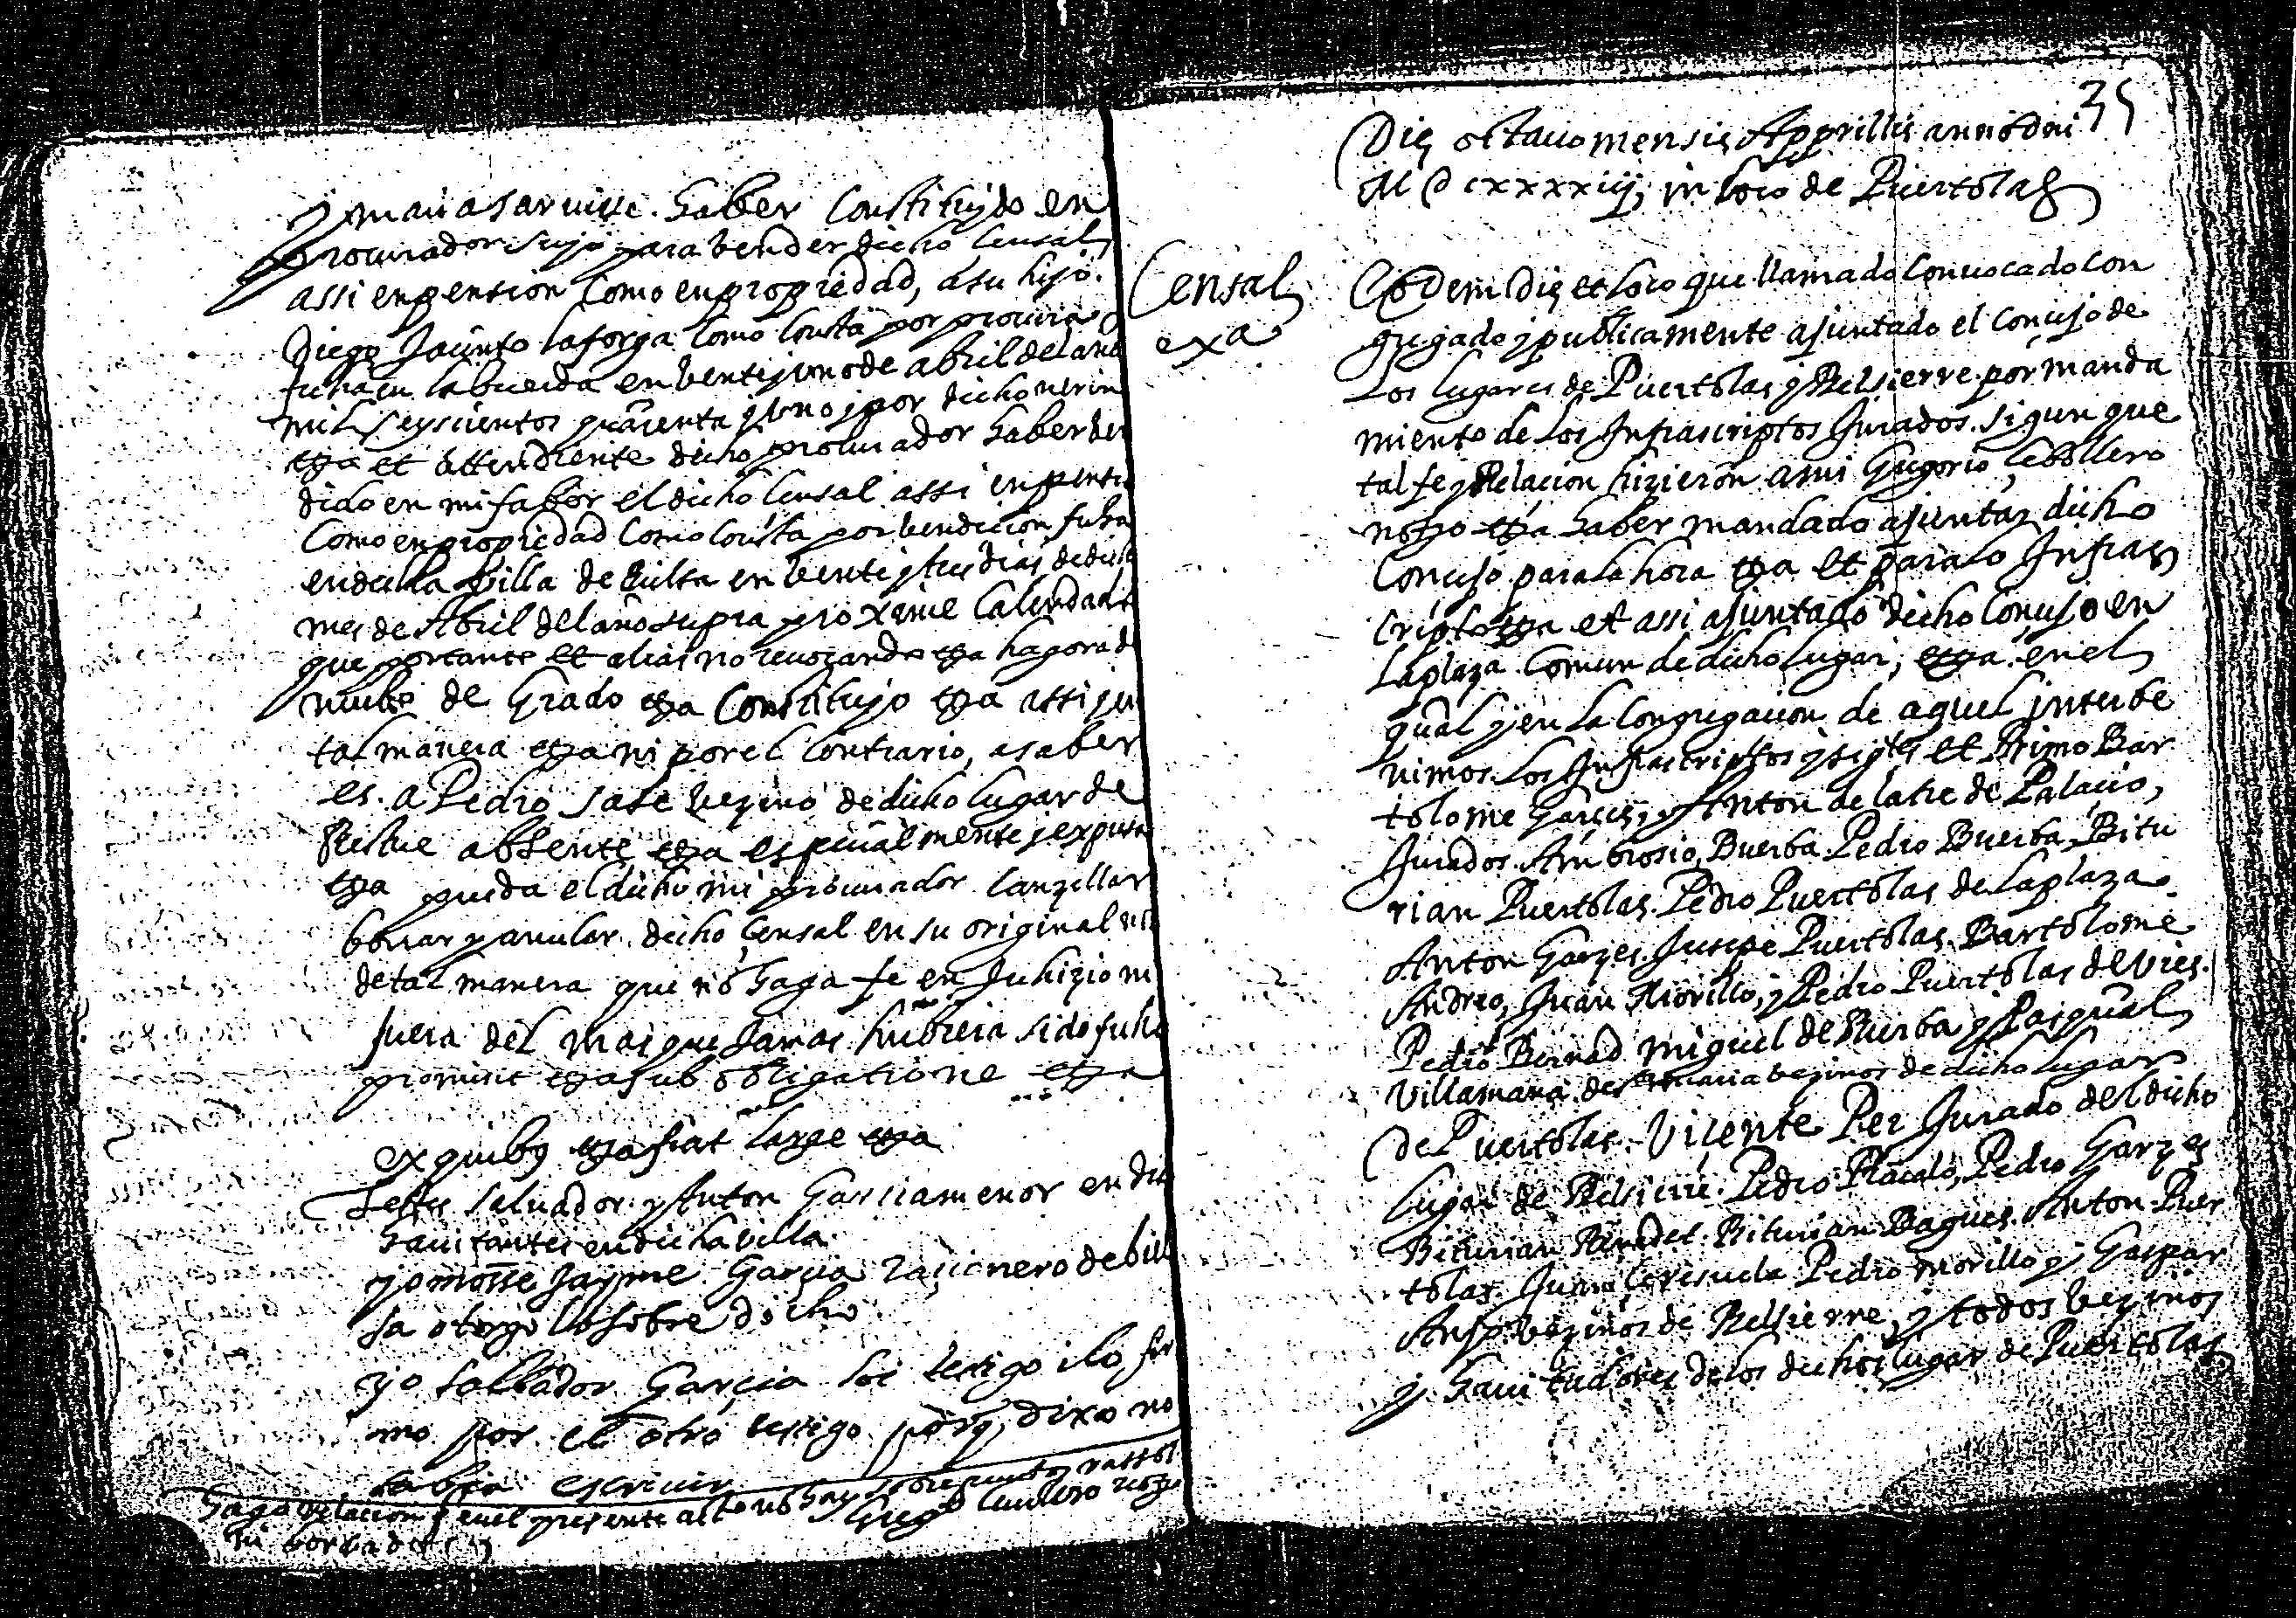 y maria saruise. haber Constituydo en
procurador suyo para bender dicho Censal
assi en pension Como en propriedad, a su hijo.
Diego Jacinto laforga Como Consta por procura
fecha en labuerda en bentiyuno de abril del año
mil seyscientos quarenta y uno y por dicho
etza et attendiente dicho procurador haber ben
dido en mi fabor el dicho Censal assi en pension
Como en propiedad Como Consta por bendicion fecha
en dicha billa de bielsa en bentiytres dias de dicho
mes de Abril del año supra proxime Calendado
que portante et alias no reuocando etza hagora de
nuebo de Grado etza Constituyo etza assi y en
tal manera etza ni por el Contrario, asaber
es. a Pedro sase bezino de dicho lugar de
absente etza especialmente y expresa
etza pueda el dicho mi procurador Canzellar
borrar y anular dicho Censal en su original
de tal manera que no haga fe en Juhizio ni
fuera del mas que Jamas hubiera sido fecho
promisit etza sub obligatione etza
ex quibus etza fiat large etza
Testes saluador y Anton Garcia menor en dia
hauitantes en dicha villa.
yo mosse Jayme Garcia racionero de biel
sa otorgo lo sobre dicho
yo salbador Garcia soi testigo i lo fir
mo por el otro testigo porq dixo no
sabia escriuir
hago relacion q en el presente acto no hay sobrepuesto
ni borrado
35
Die octauo mensis Apprillis anno dni
M D cxxxxiij, in loco de Puertolas
Censal
etza
Eodem Die et loco que llamado Conuocado Con
gregado y publicamente ajuntado el Concejo de
Los lugares de Puertolas y Belsierre por manda
miento de los Infrascriptos Jurados. sigun que
tal fe y Relacion hizieron a mi Gregorio Cebollero
noto etza haber mandado ajuntar dicho
Concejo para la hora etza et para lo Infras
cripto etza et assi ajuntado dicho Concejo en
la plaza Comun de dicho lugar, etza en el
qual y en la Congregacion de aquel interbe
nimos los Infrascriptos y sigtes et Primo Bar
tolome Garces, y Anton de latre de Palacio,
Jurados. Ambrosio Buerba Pedro Buerba Bitu
rian Puertolas. Pedro Puertolas de la plaza
Anton Garzes. Jusepe Puertolas. Bartolome
Andreo, Juan Morillo, y Pedro Puertolas de vies.
Pedro Bernad miguel de Buerba y Pasqual
Villamana de bezinos de dicho lugar
de Puertolas. Vicente Per Jurado del dicho
lugar de Belsierre. Pedro Pedro Garzes
Biturian Biturian Bagues. Anton Puer
tolas. Juan Ceresuela Pedro morillo y Gaspar
bezinos de Belsierre, y todos bezinos
y hauitadores de los dichos lugar de Puertolas